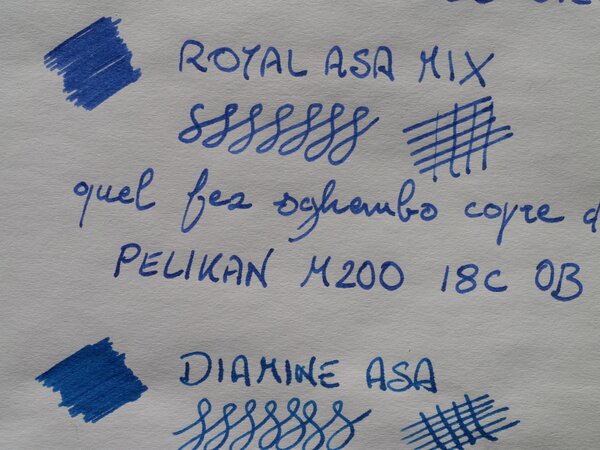 ROYAL ASA MIX
quel fez sghembo copre d
PELIKAN M200 18C OB
DIAMINE ASA